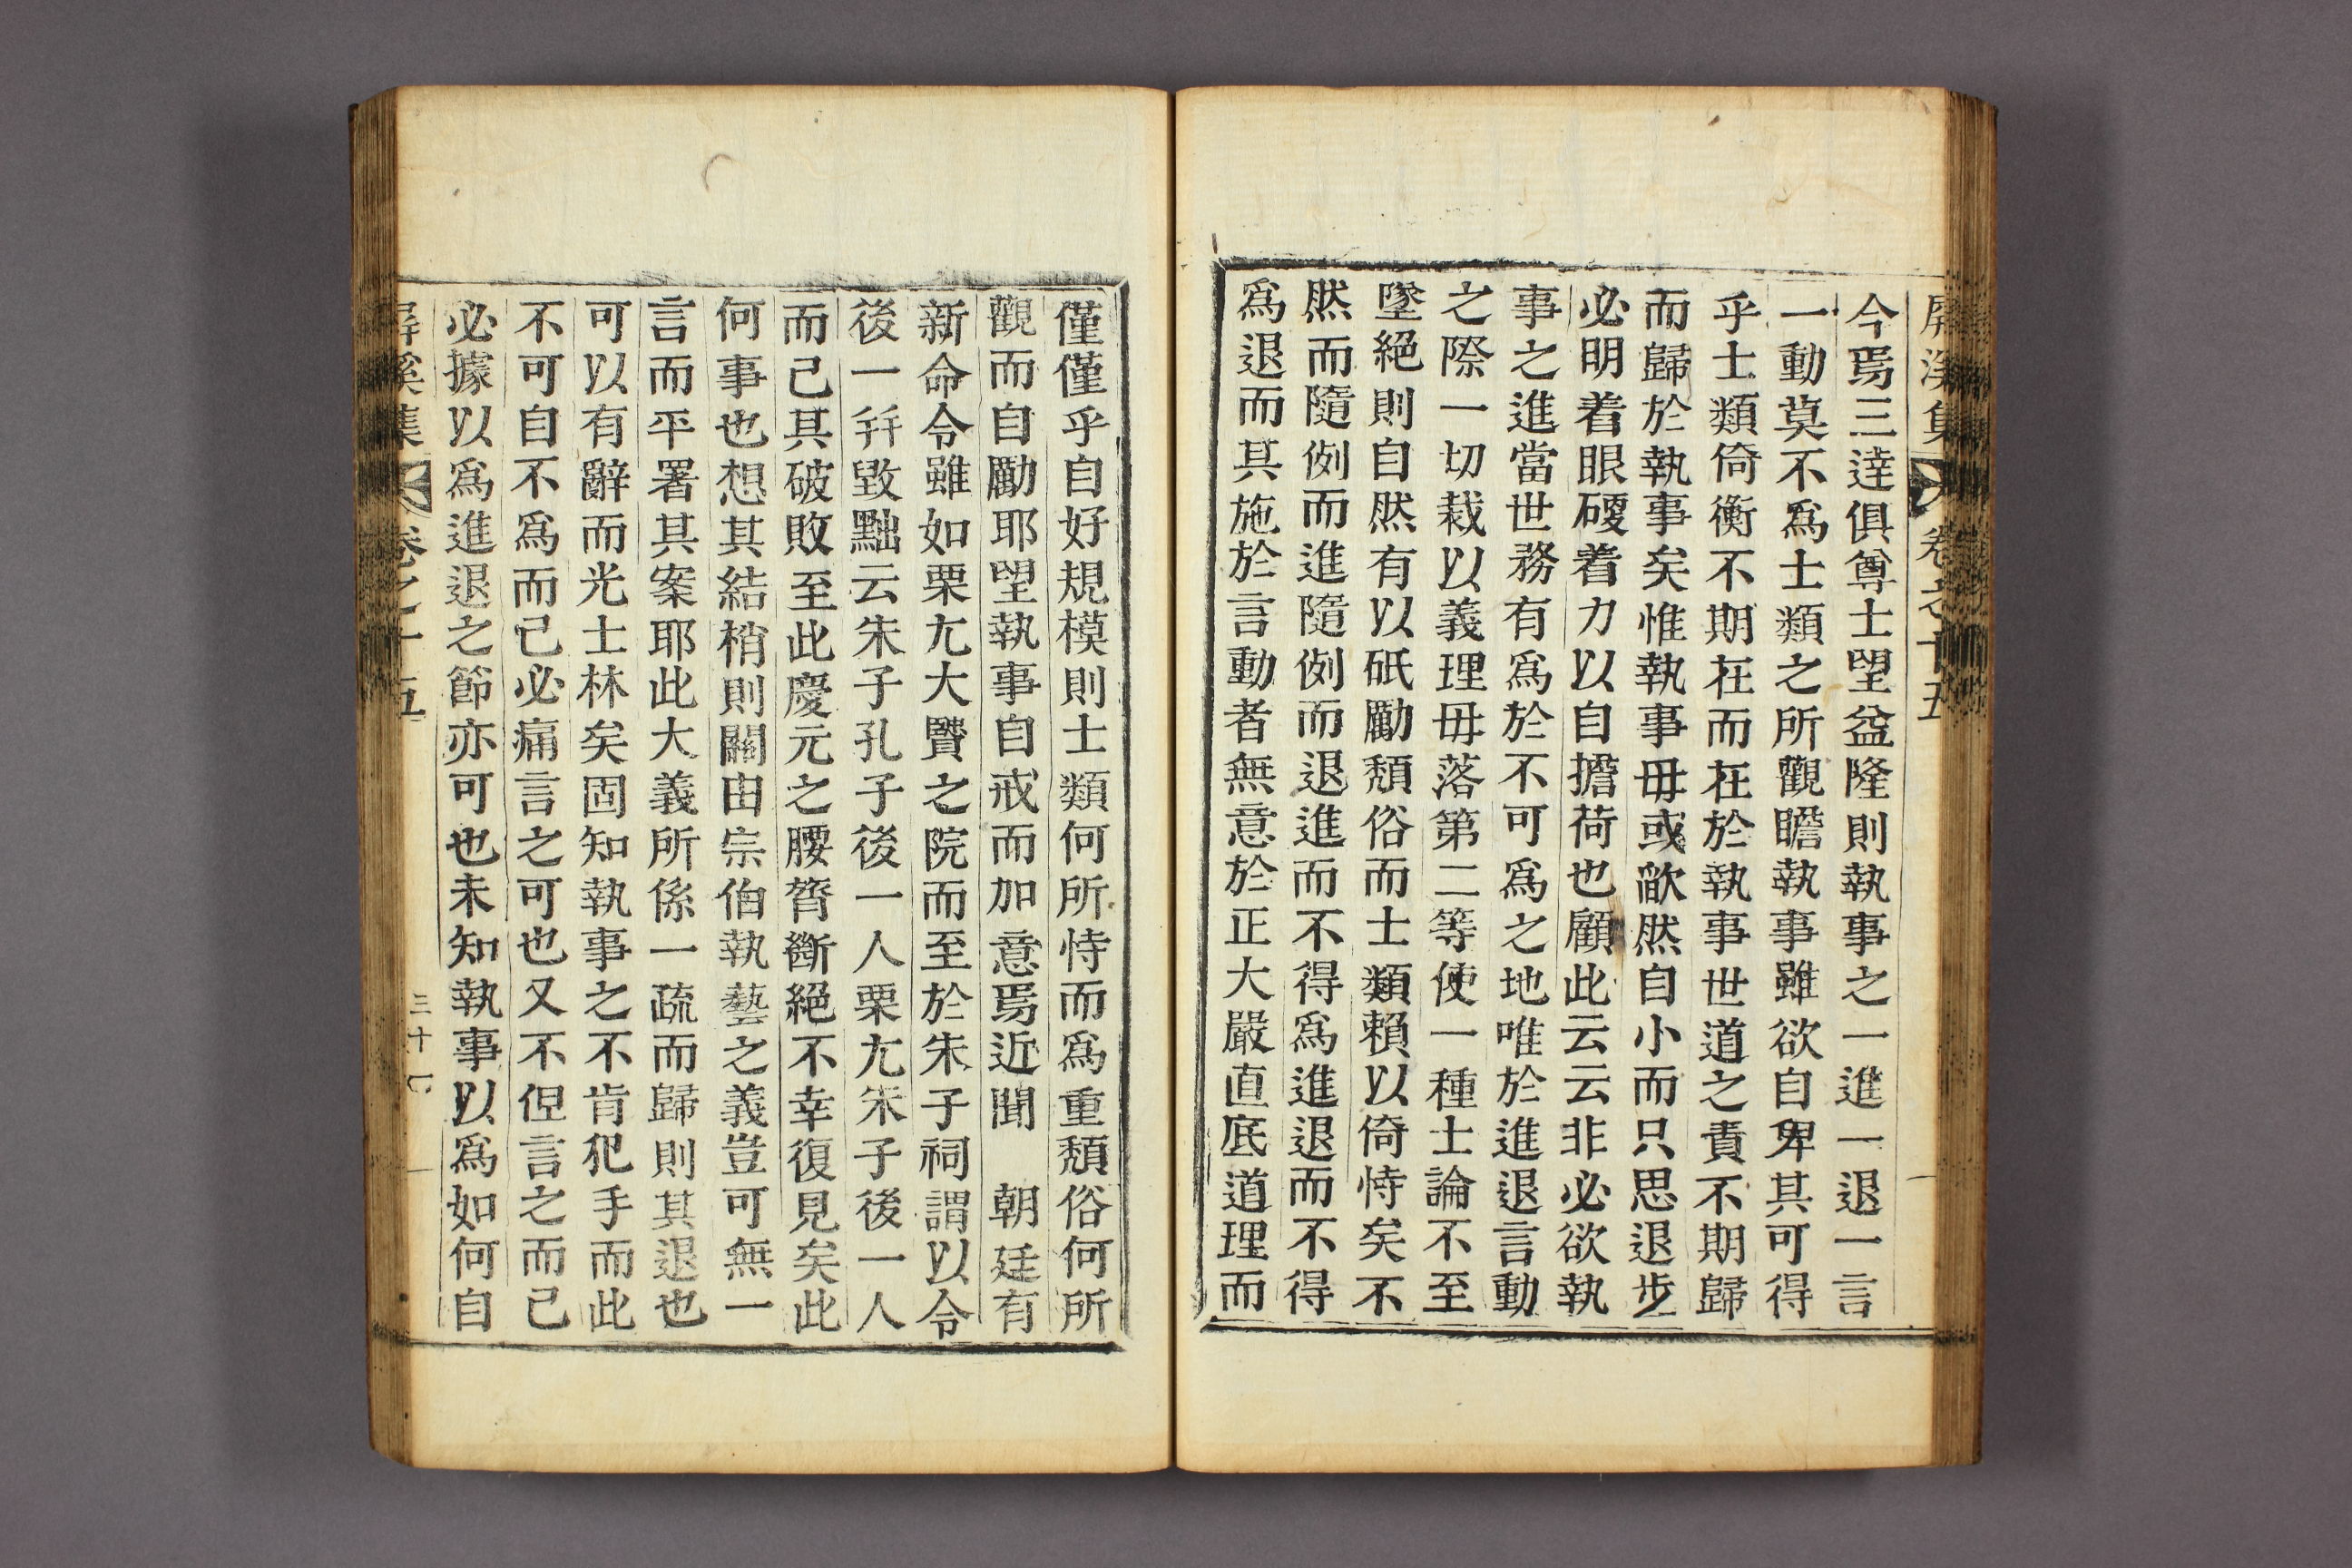 屛溪集 卷之十五
今焉三達俱尊士望益隆則執事之一進一退一言
一動莫不爲士類之所觀瞻執事雖欲自卑其可得
乎士類倚衡不期在而在於執事世道之責不期歸
而歸於執事矣惟執事毋或歉然自小而只思退步
必明着眼硬着力以自擔荷也顧此云云非必欲執
事之進當世務有爲於不可爲之地唯於進退言動
之際一切裁以義理毋落第二等使一種士論不至
墜絕則自然有以砥勵頹俗而士類賴以倚恃矣不
然而隨例而進隨例而退進而不得爲進退而不得
爲退而其施於言動者無意於正大嚴直底道理而
僅僅乎自好規模則士類何所恃而爲重頹俗何所
觀而自勵耶望執事自戒而加意焉近聞 朝廷有
新命令雖如栗尤大贒之院而至於朱子祠謂以令
後一幷毀黜云朱子孔子後一人栗尤朱子後一人
而已其破敗至此慶元之腰膂斷絕不幸復見矣此
何事也想其結梢則關由宗伯執藝之義豈可無一
言而平署其案耶此大義所係一疏而歸則其退也
可以有辭而光士林矣固知執事之不肯犯手而此
不可自不爲而已必痛言之可也又不但言之而已
必據以爲進退之節亦可也未知執事以爲如何自
屛溪集 卷之十五 三十七